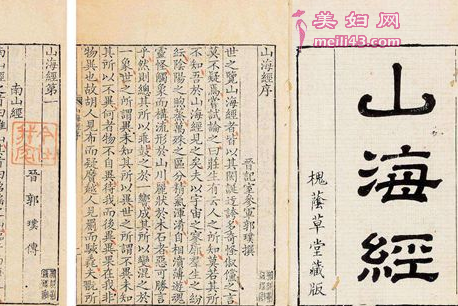 美妇网
meili43.com
山海經
槐蔭草堂藏版
山海經序
晉記室參軍郭璞撰
世之覽山海經者皆以其閎誕迂誇多奇怪俶儻之言
莫不疑焉嘗試論之曰莊生有云人之所知莫若其所
不知吾於山海經見之矣夫以宇宙之寥廓羣生之紛
紜陰陽之煦蒸萬殊之區分精氣渾淆自相濆薄遊魂
靈怪觸象而構流形於山川麗狀於木石者惡可勝言
乎然則總其所以乖鼓之於一響成其所以變混之於
一象世之所謂異未知其所以異世之所謂不異未知
其所以不異何者物不自異待我而後異異果在我非
物異也故胡人見布而疑黂越人見罽而駭毳夫翫所
山海經第一
南山經
晉 郭璞 傳